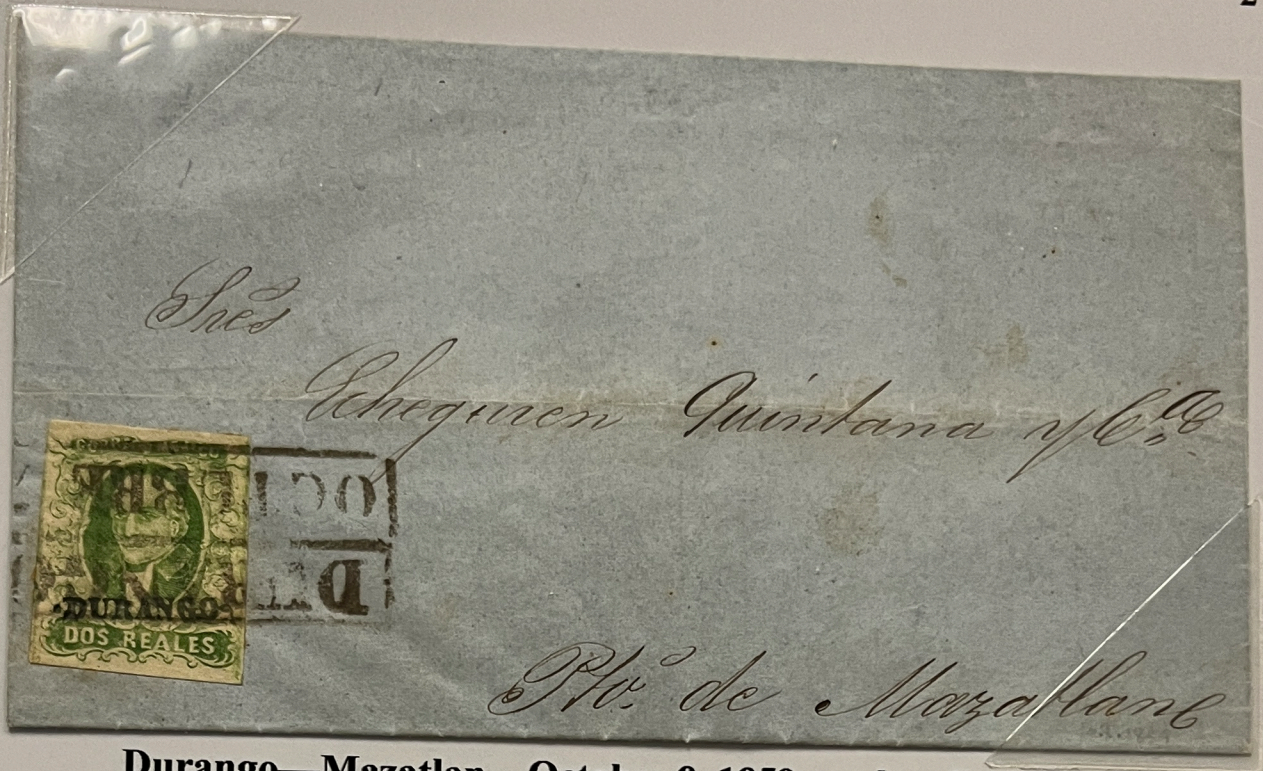 Sres
Echeguren Quintana y Ca
DURANGO
DOS REALES
Pto. de Mazatlan
Durango Mazatlan